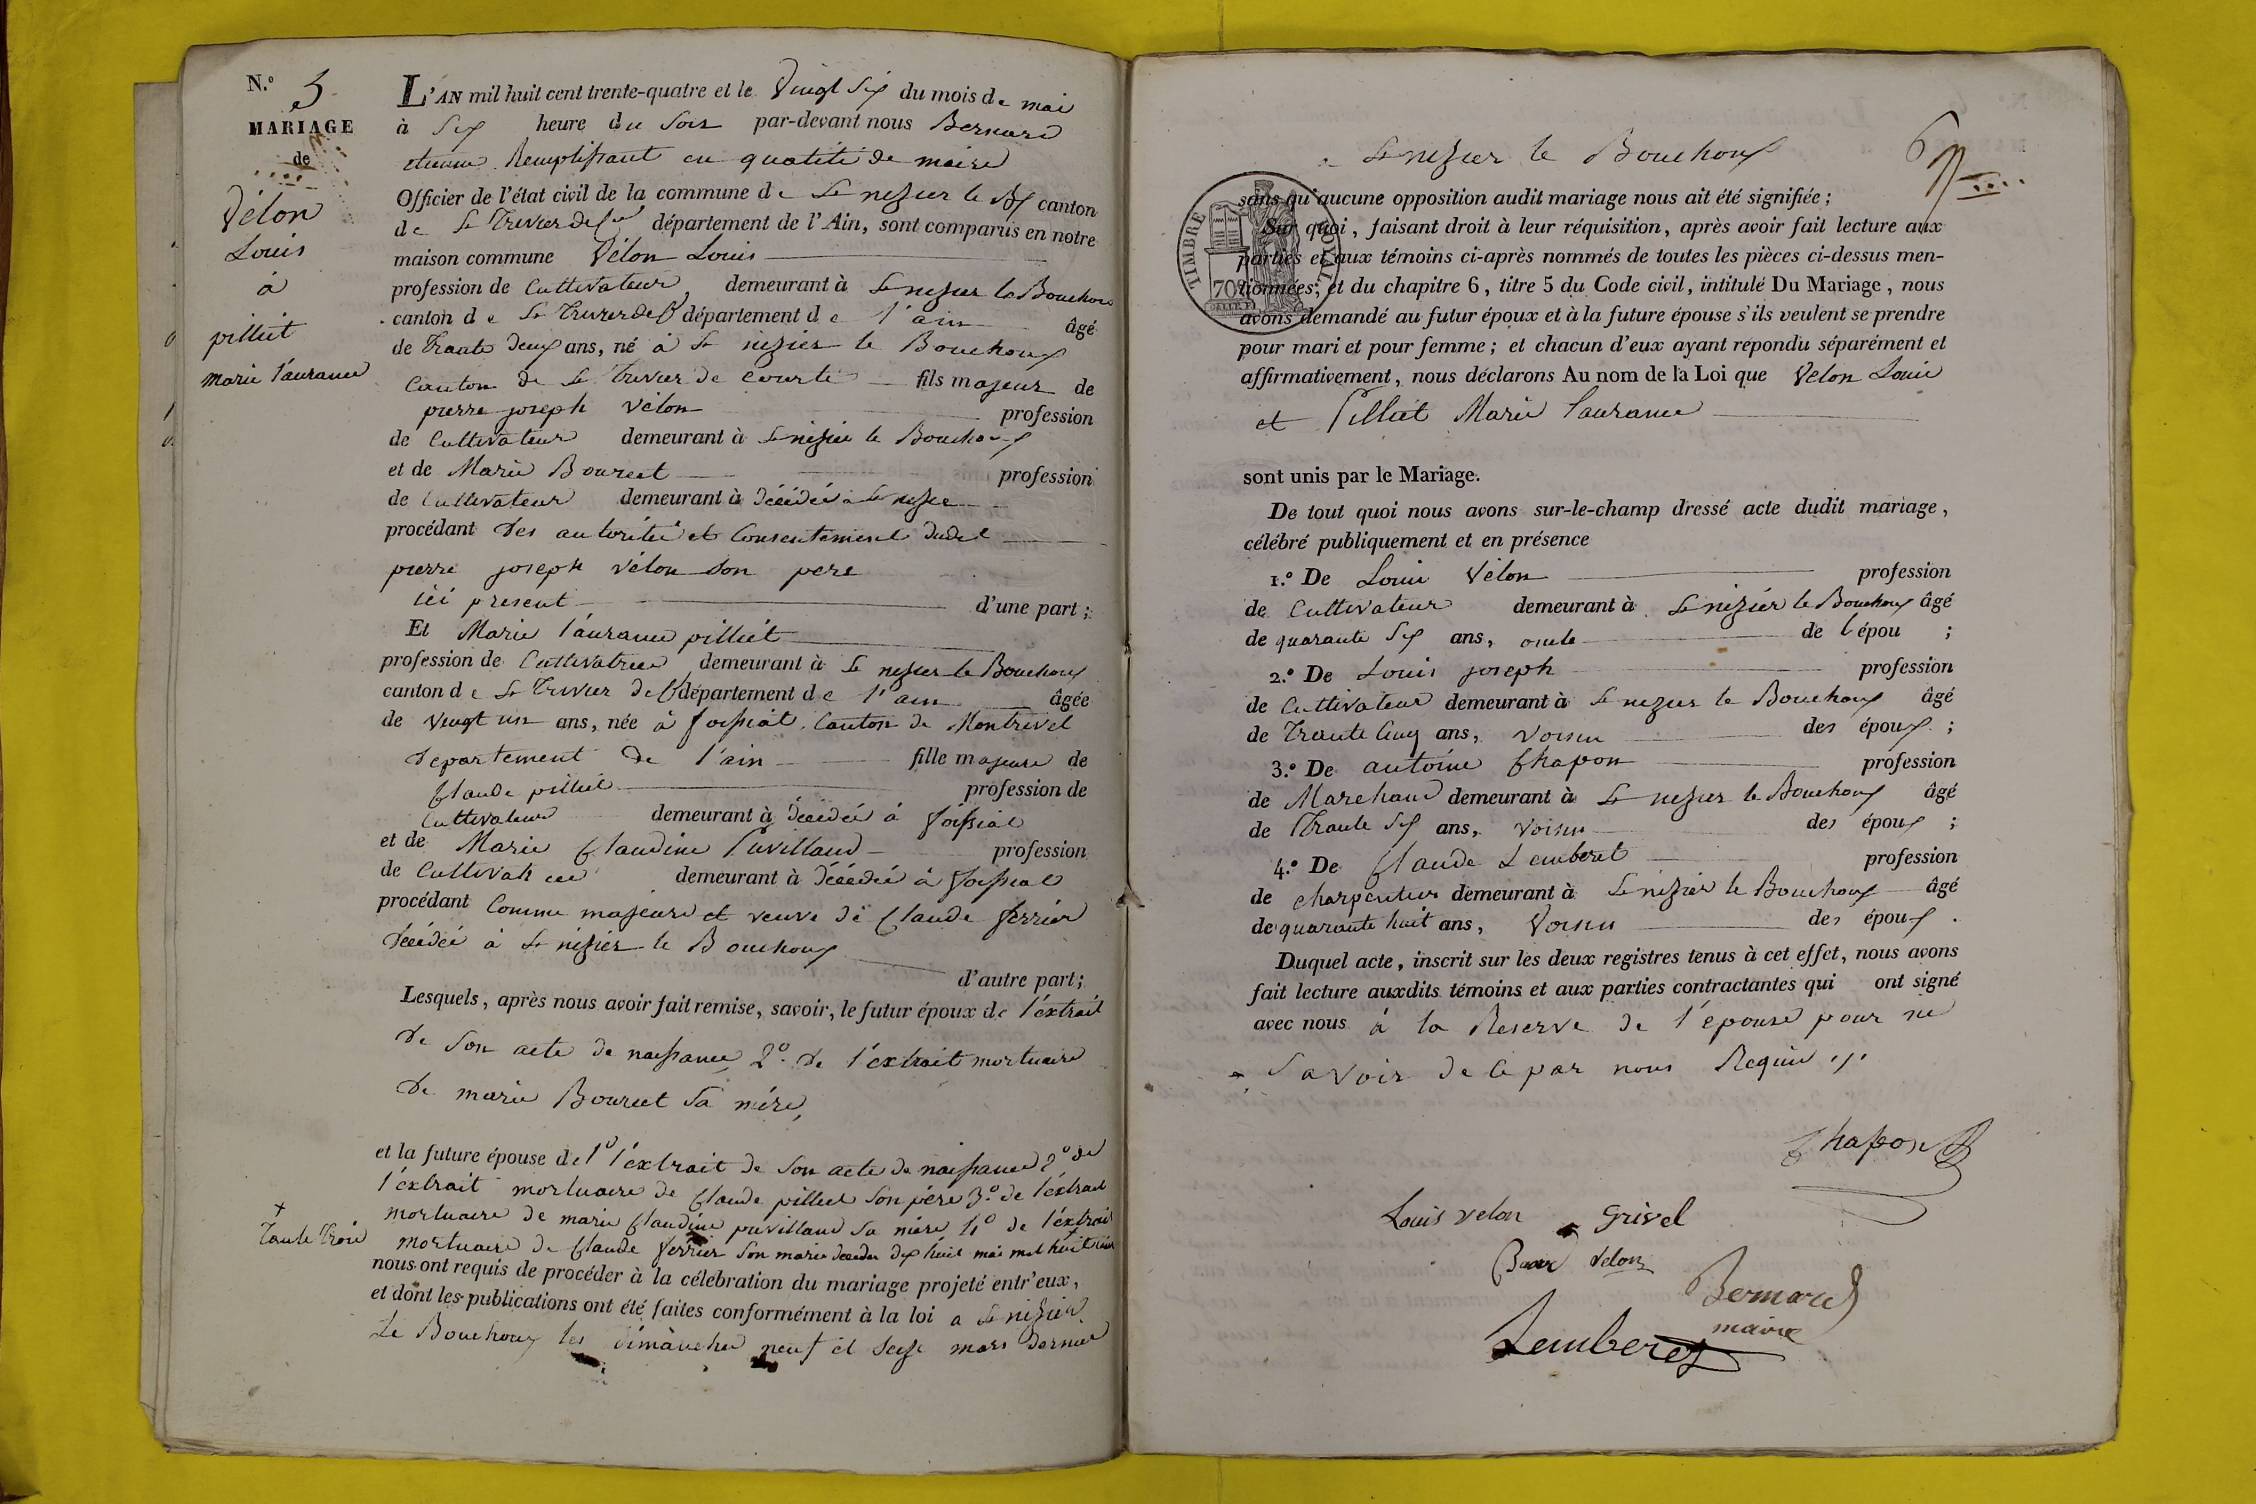 N.° 5
MARIAGE
de
Vélon
Louis
à
pilliet
marie laurance
L'AN mil huit cent trente-quatre et le Vingt Six du mois de mai
à Six heure du Soir par-devant nous Bernard
etienne Remplissant en quatité de maire
Officier de l'état civil de la commune de St nizier le Bx canton
de St Trivier de Ctes département de l'Ain, sont comparus en notre
maison commune Vélon Louis
profession de Cultivateur, demeurant à St nizier le Bouchoux
canton de St Trivier de C département de l'ain âgé
de Trante deux ans, né à St nizier le Bouchoux
Canton de St Trivier de Courte fils majeur de
pierre joseph Vélon profession
de Cultivateur demeurant à St nizier le Bouchoux
et de Marie Bourcet profession
de Cultivateur demeurant à décédée à St nizier
procédant des autorité et Consentement dudit
pierre joseph vélon son pere
ici present d'une part;
Et Marie laurance pilliet
profession de Cultivatrice demeurant à St nizier le Bouchoux
canton de St Trivier de C département de l'ain âgée
de vingt un ans, née à foissiat Canton de Montrevel
departement de l'ain fille majeure de
Claude pilliet profession de
Cultivateur demeurant à décédé à foissiat
et de Marie Claudine Puvilland profession
de Cultivatrice demeurant à décédée à foissiat
procédant Comme majeure et veuve de Claude ferrier
décédé à St nizier le Bouchoux
d'autre part;
Lesquels, après nous avoir fait remise, savoir, le futur époux de l'éxtrait
de Son acte de naissance 2° de l'éxtrait mortuaire
de marie Bourcet Sa mére,
et la future épouse de 1° l'éxtrait de Son acte de naissance 2° de
l'éxtrait mortuaire de Claude pilliet Son pére 3° de l'éxtrait
mortuaire de marie Claudine puvilland Sa mére 4° de l'éxtrait
+
Tante Trois
mortuaire de Claude ferrier Son marie décédé dix huit mai mil huit cent
nous ont requis de procéder à la célebration du mariage projeté entr'eux,
et dont les publications ont été faites conformément à la loi a St nizier
Le Bouchoux les dimanches neuf et seize mars dernier
6
St nizier le Bouchoux
TIMBRE ROYAL
70c
sans qu'aucune opposition audit mariage nous ait été signifiée;
Sur quoi, faisant droit à leur réquisition, après avoir fait lecture aux
parties et aux témoins ci-après nommés de toutes les pièces ci-dessus men-
tionnées, et du chapitre 6, titre 5 du Code civil, intitulé Du Mariage, nous
avons demandé au futur époux et à la future épouse s'ils veulent se prendre
pour mari et pour femme; et chacun d'eux ayant répondu séparément et
affirmativement, nous déclarons Au nom de la Loi que Vélon Louis
et Pilliet Marie laurance
sont unis par le Mariage.
De tout quoi nous avons sur-le-champ dressé acte dudit mariage,
célébré publiquement et en présence
1.° De Louis Vélon profession
de Cultivateur demeurant à St nizier le Bouchoux âgé
de quarante Six ans, oncle de l'épou ;
2.° De Louis joseph profession
de Cultivateur demeurant à St nizier le Bouchoux âgé
de Trante Cinq ans, voisin des époux ;
3.° De antoine Chapon profession
de Marchand demeurant à St nizier le Bouchoux âgé
de Trante Six ans, voisin des époux ;
4.° De Claude Lemberet profession
de charpentier demeurant à St nizier le Bouchoux âgé
de quarante huit ans, Voisin des époux .
Duquel acte, inscrit sur les deux registres tenus à cet effet, nous avons
fait lecture auxdits témoins et aux parties contractantes qui ont signé
avec nous à la Reserve de l'epouse pour ne
Savoir de Ce par nous Requie
Chapon
Louis velon Grivel
velon
Bernard
maire
Lemberet